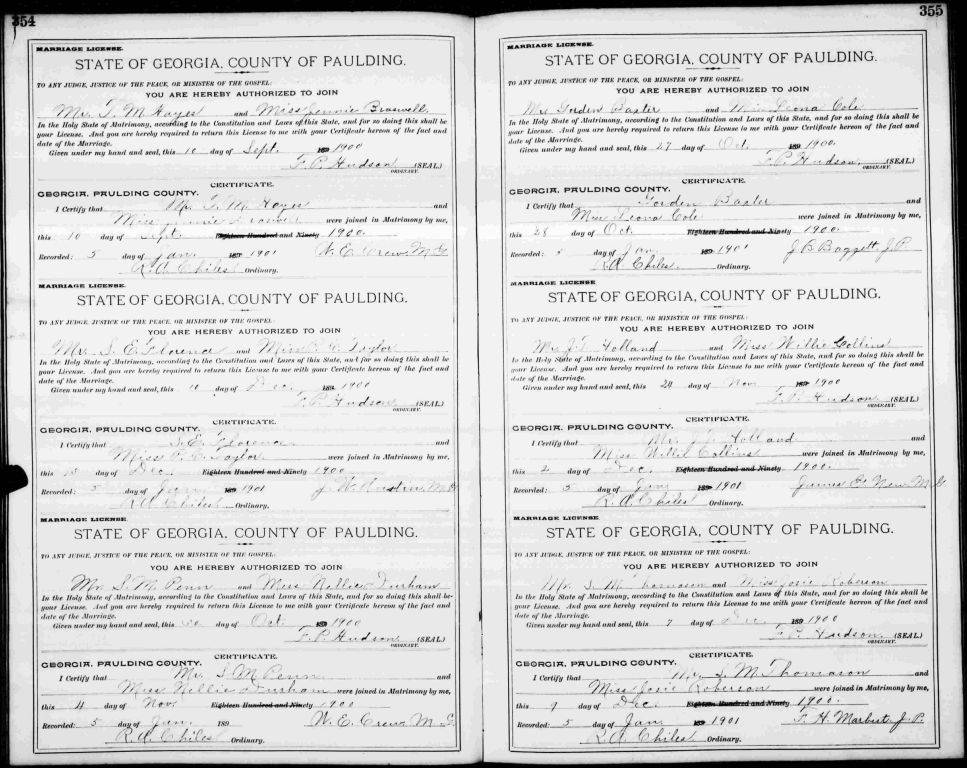 354
MARRIAGE LICENSE.
STATE OF GEORGIA, COUNTY OF PAULDING.
TO ANY JUDGE, JUSTICE OF THE PEACE, OR MINISTER OF THE GOSPEL:
YOU ARE HEREBY AUTHORIZED TO JOIN
Mr. T. M. Hayes and Miss Jennie Braswell
In the Holy State of Matrimony, according to the Constitution and Laws of this State, and for so doing this shall be
your License. And you are hereby required to return this License to me with your Certificate hereon of the fact and
date of the Marriage.
Given under my hand and seal, this 10 day of Sept. 189 1900
F. P. Hudson (SEAL.)
ORDINARY.
CERTIFICATE.
GEORGIA, PAULDING COUNTY.
I Certify that Mr. T. M. Hayes and
Miss Jennie Braswell were joined in Matrimony by me,
this 10 day of Sept. Eighteen Hundred and Ninety 1900.
Recorded: 5 day of Jan. 189 1901 W. E. Crews M.G.
R. A. Chiles Ordinary.
MARRIAGE LICENSE.
STATE OF GEORGIA, COUNTY OF PAULDING.
TO ANY JUDGE, JUSTICE OF THE PEACE, OR MINISTER OF THE GOSPEL:
YOU ARE HEREBY AUTHORIZED TO JOIN
Mr. S. E. Florence and Miss Taylor
In the Holy State of Matrimony, according to the Constitution and Laws of this State, and for so doing this shall be
your License. And you are hereby required to return this License to me with your Certificate hereon of the fact and
date of the Marriage.
Given under my hand and seal, this 10 day of Dec. 189 1900
F. P. Hudson (SEAL.)
ORDINARY.
CERTIFICATE.
GEORGIA, PAULDING COUNTY.
I Certify that S. E. Florence and
Miss Taylor were joined in Matrimony by me,
this day of Dec. Eighteen Hundred and Ninety 1900.
Recorded: 5 day of Jan. 189 1901 J. W. M.G.
R. A. Chiles Ordinary.
MARRIAGE LICENSE.
STATE OF GEORGIA, COUNTY OF PAULDING.
TO ANY JUDGE, JUSTICE OF THE PEACE, OR MINISTER OF THE GOSPEL:
YOU ARE HEREBY AUTHORIZED TO JOIN
Mr. S. M. Penn and Miss Durham
In the Holy State of Matrimony, according to the Constitution and Laws of this State, and for so doing this shall be
your License. And you are hereby required to return this License to me with your Certificate hereon of the fact and
date of the Marriage.
Given under my hand and seal, this day of Oct. 189 1900
F. P. Hudson (SEAL.)
ORDINARY.
CERTIFICATE.
GEORGIA, PAULDING COUNTY.
I Certify that Mr. S. M. Penn and
Miss Nellie Durham were joined in Matrimony by me,
this 4 day of Nov. Eighteen Hundred and Ninety 1900
Recorded: 5 day of Jan. 189 W. E. Crews M.G.
R. A. Chiles Ordinary.
355
MARRIAGE LICENSE.
STATE OF GEORGIA, COUNTY OF PAULDING.
TO ANY JUDGE, JUSTICE OF THE PEACE, OR MINISTER OF THE GOSPEL:
YOU ARE HEREBY AUTHORIZED TO JOIN
Mr. Gorden Baxter and Miss Leona Cole
In the Holy State of Matrimony, according to the Constitution and Laws of this State, and for so doing this shall be
your License. And you are hereby required to return this License to me with your Certificate hereon of the fact and
date of the Marriage.
Given under my hand and seal, this 27 day of Oct. 189 1900.
F. P. Hudson (SEAL.)
ORDINARY.
CERTIFICATE.
GEORGIA, PAULDING COUNTY.
I Certify that Gorden Baxter and
Miss Leona Cole were joined in Matrimony by me,
this 28 day of Oct. Eighteen Hundred and Ninety 1900.
Recorded: 5 day of Jan. 189 1901 J. B. Baggett J.P.
R. A. Chiles. Ordinary.
MARRIAGE LICENSE
STATE OF GEORGIA, COUNTY OF PAULDING.
TO ANY JUDGE, JUSTICE OF THE PEACE, OR MINISTER OF THE GOSPEL:
YOU ARE HEREBY AUTHORIZED TO JOIN
Mr. J. T. Holland and Miss Willie Collins
In the Holy State of Matrimony, according to the Constitution and Laws of this State, and for so doing this shall be
your License. And you are hereby required to return this License to me with your Certificate hereon of the fact and
date of the Marriage.
Given under my hand and seal, this day of Nov. 189 1900
F. P. Hudson (SEAL.)
ORDINARY.
CERTIFICATE.
GEORGIA, PAULDING COUNTY.
I Certify that Mr. J. T. Holland and
Miss Willie Collins were joined in Matrimony by me,
this 2 day of Dec. Eighteen Hundred and Ninety 1900.
Recorded: 5 day of Jan. 189 1901 James New M.G.
R. A. Chiles Ordinary.
MARRIAGE LICENSE.
STATE OF GEORGIA, COUNTY OF PAULDING.
TO ANY JUDGE, JUSTICE OF THE PEACE, OR MINISTER OF THE GOSPEL:
YOU ARE HEREBY AUTHORIZED TO JOIN
Mr. S. M. Thomason and Miss Josie Roberson
In the Holy State of Matrimony, according to the Constitution and Laws of this State, and for so doing this shall be
your License. And you are hereby required to return this License to me with your Certificate hereon of the fact and
date of the Marriage.
Given under my hand and seal, this 7 day of Dec. 189 1900
F. P. Hudson. (SEAL.)
ORDINARY.
CERTIFICATE.
GEORGIA, PAULDING COUNTY.
I Certify that Mr. S. M. Thomason and
Miss Josie Roberson were joined in Matrimony by me,
this 9 day of Dec. Eighteen Hundred and Ninety 1900.
Recorded: 5 day of Jan. 189 1901 T. H. Marbut J.P.
R. A. Chiles Ordinary.